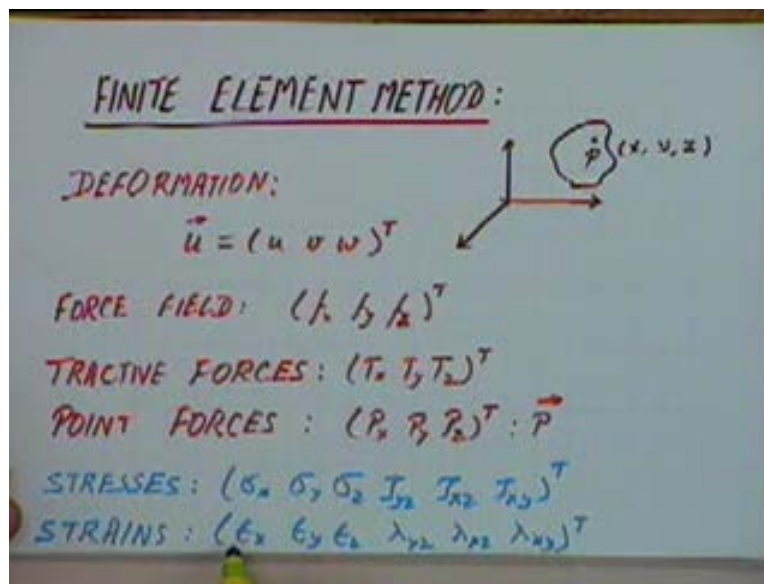 FINITE ELEMENT METHOD:
p (x, v, z)
DEFORMATION:
u⃗ = (u v w)ᵀ
FORCE FIELD: (fₓ f_y f_z)ᵀ
TRACTIVE FORCES: (Tₓ T_y T_z)ᵀ
POINT FORCES : (Pₓ P_y P_z)ᵀ : P⃗
STRESSES: (σₓ σ_y σ_z τ_yz τ_xz τ_xy)ᵀ
STRAINS : (εₓ ε_y ε_z λ_yz λ_xz λ_xy)ᵀ